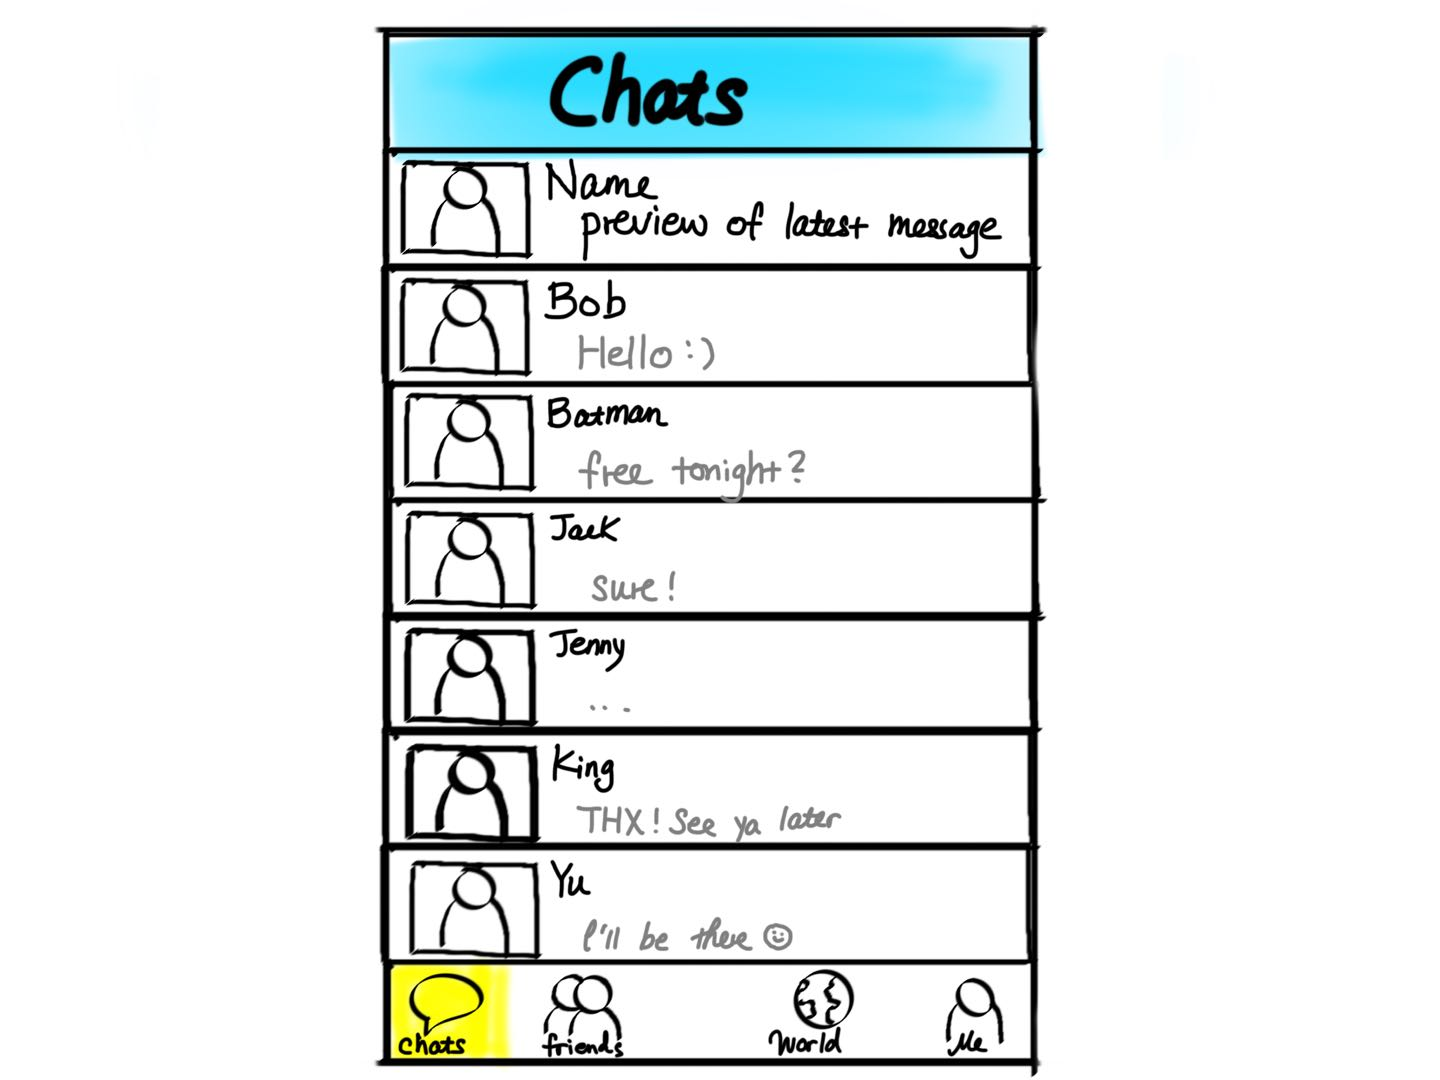 Chats
Name
preview of latest message
Bob
Hello :)
Batman
free tonight?
Jack
sure!
Jenny
...
King
THX! See ya later
Yu
I'll be there ☺
chats
friends
World
Me